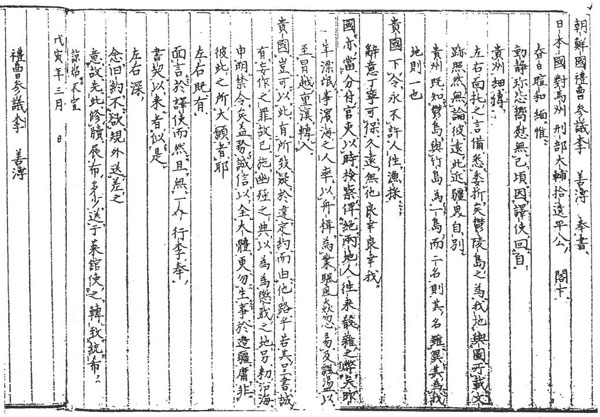 朝鮮國禮曹參議李 善溥 奉書
日本國對馬州刑部大輔拾遺平公 閤下
春日暄和緬惟
動靜珍毖嚮慰無已頃因譯使回自
貴州細傳
左右面托之言備悉委折矣鬱陵島之為我地輿圖所載文
跡照然無論彼遠此近疆界自別
貴州既知鬱島與竹島為一島而二名則其名雖異其為我
地則一也
貴國下令永不許人往漁採
辭意丁寧可保久遠無他良幸良幸我
國亦當分付官吏以時檢察俾絶兩地人往来殽雜之弊矣昨
年漂氓事濱海之人率以舟楫為業颿風焱忽易及飄盪以
至冒越重溟轉入
貴國豈可以此有所致疑於違定約而由他路乎若其呈書誠
有妄作之罪故已施幽殛之典以為懲戢之地另勅沿海
申明禁令矣益務誠信以全大體更勿生事於邊疆庸非
彼此之所大願者耶
左右既有
面言於譯使而然且無一介行李奉
書契以来者似是
左右深
念旧約不欲規外送差之
意故先此修牘展布多少送于萊館使之轉致統希
諒炤不宣
戊寅年三月 日
禮曹參議李 善溥